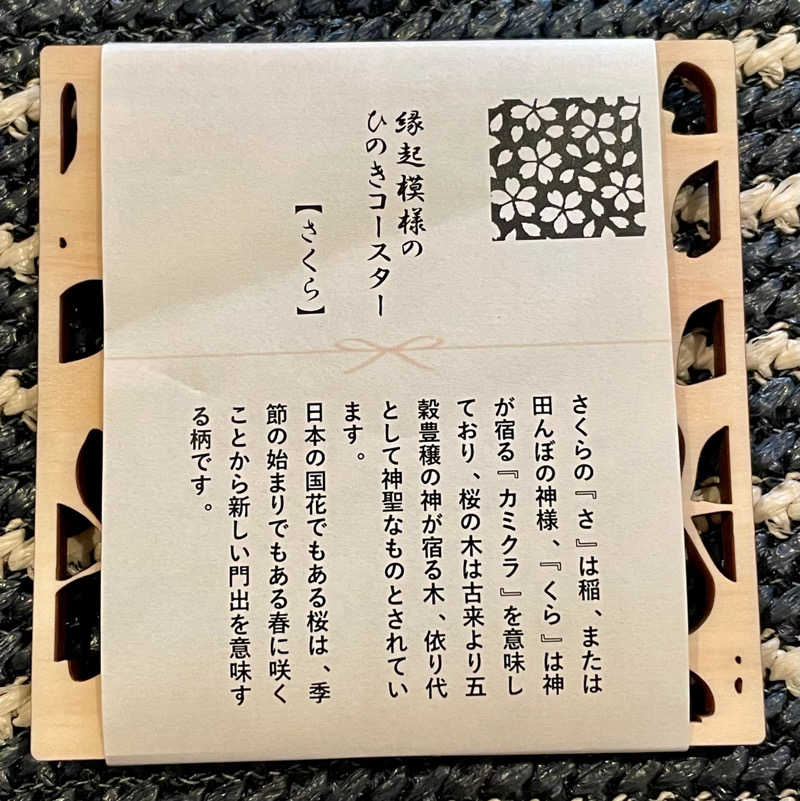 縁起模様の
ひのきコースター
【さくら】
さくらの『さ』は稲、または
田んぼの神様、『くら』は神
が宿る『カミクラ』を意味し
ており、桜の木は古来より五
穀豊穣の神が宿る木、依り代
として神聖なものとされてい
ます。
日本の国花でもある桜は、季
節の始まりでもある春に咲く
ことから新しい門出を意味す
る柄です。